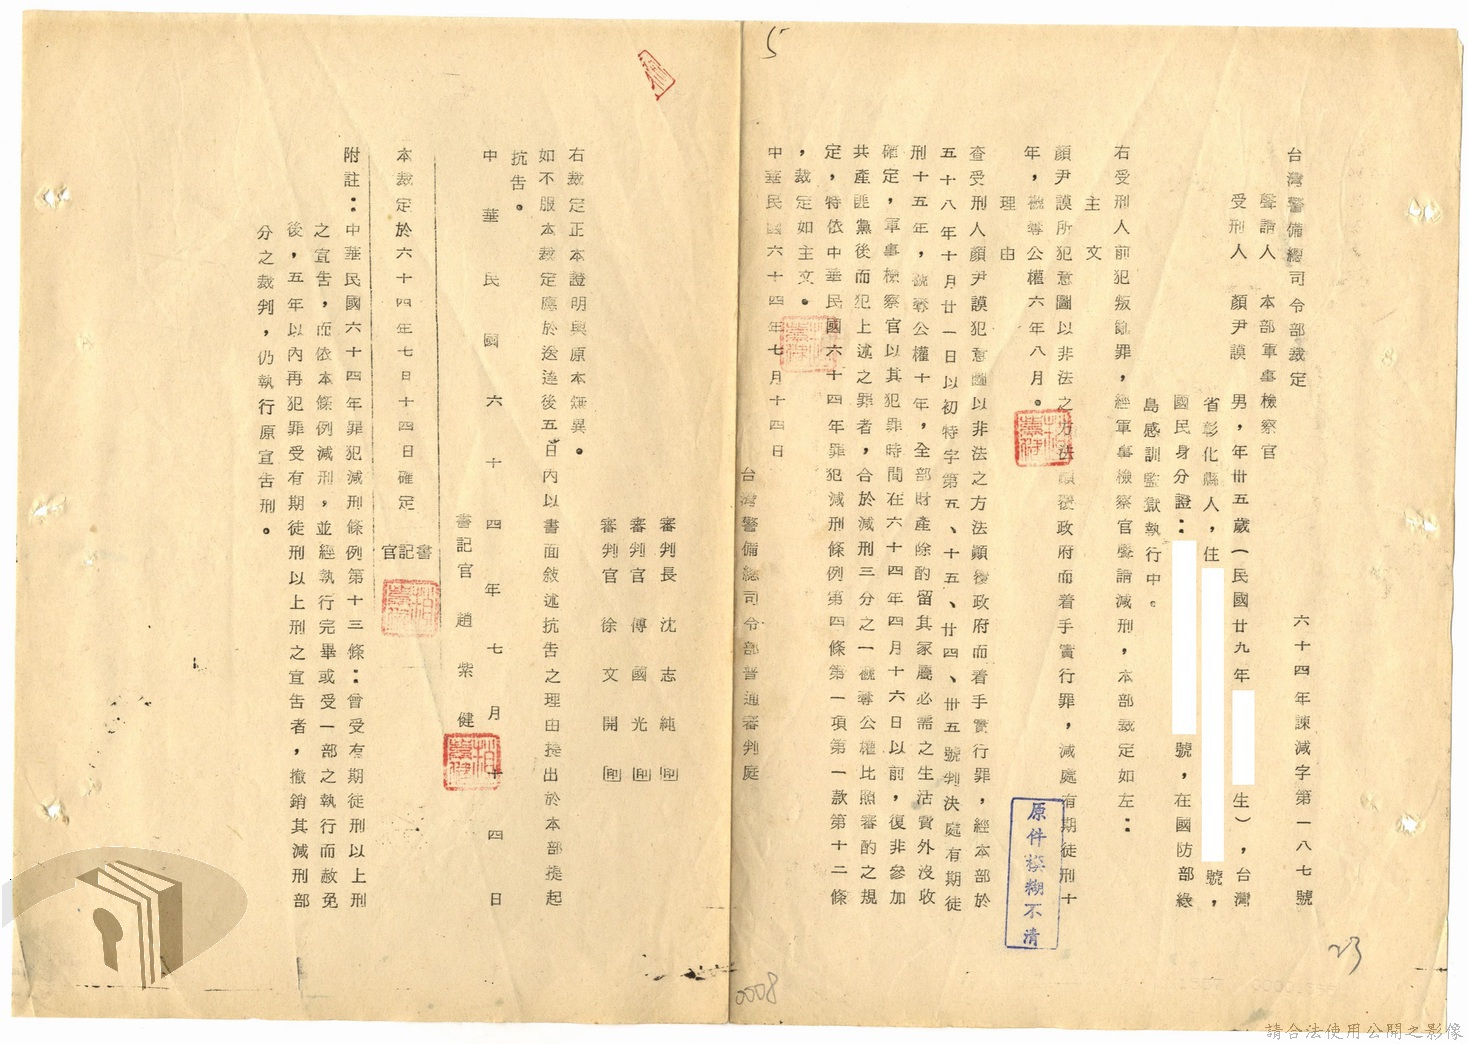 5
台灣警備總司令部裁定
六十四年諫減字第一八七號
聲請人　本部軍事檢察官
受刑人　顏尹謨　男，年卅五歲（民國廿九年
生），台灣
省彰化縣人，住
號，
國民身分證：
號，在國防部綠
島感訓監獄執行中。
右受刑人前犯叛亂罪，經軍事檢察官聲請減刑，本部裁定如左：
主　文
顏尹謨所犯意圖以非法之方法顛覆政府而着手實行罪，減處有期徒刑十
年，褫奪公權六年八月。
理　由
查受刑人顏尹謨犯意圖以非法之方法顛覆政府而着手實行罪，經本部於
五十八年十月廿一日以初特字第五、十五、廿四、卅五號判決處有期徒
刑十五年，褫奪公權十年，全部財產除酌留其家屬必需之生活費外沒收
確定，軍事檢察官以其犯罪時間在六十四年四月十六日以前，復非參加
共產匪黨後而犯上述之罪者，合於減刑三分之一褫奪公權比照審酌之規
定，特依中華民國六十四年罪犯減刑條例第四條第一項第一款第十二條
，裁定如主文。
中華民國六十四年七月十四日
台灣警備總司令部普通審判庭
審判長　沈志純　印
審判官　傅國光　印
審判官　徐文開　印
右裁定正本證明與原本無異。
如不服本裁定應於送達後五日內以書面敘述抗告之理由提出於本部提起
抗告。
中華民國六十四年七月十四日
書記官　趙紫健
本裁定於六十四年七月十四日確定
書記官
附註：中華民國六十四年罪犯減刑條例第十三條：曾受有期徒刑以上刑
之宣告，而依本條例減刑，並經執行完畢或受一部之執行而赦免
後，五年以內再犯罪受有期徒刑以上刑之宣告者，撤銷其減刑部
分之裁判，仍執行原宣告刑。
原件模糊不清
23
0008
請合法使用公開之影像